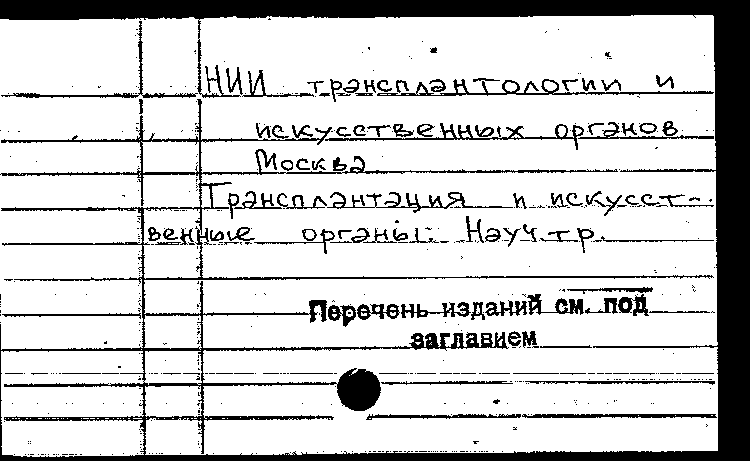 НИИ трансплантологии и
искусственных органов
Москва
Трансплантация и искусст-
венные органы: Науч.тр.
Перечень изданий см. под
заглавием